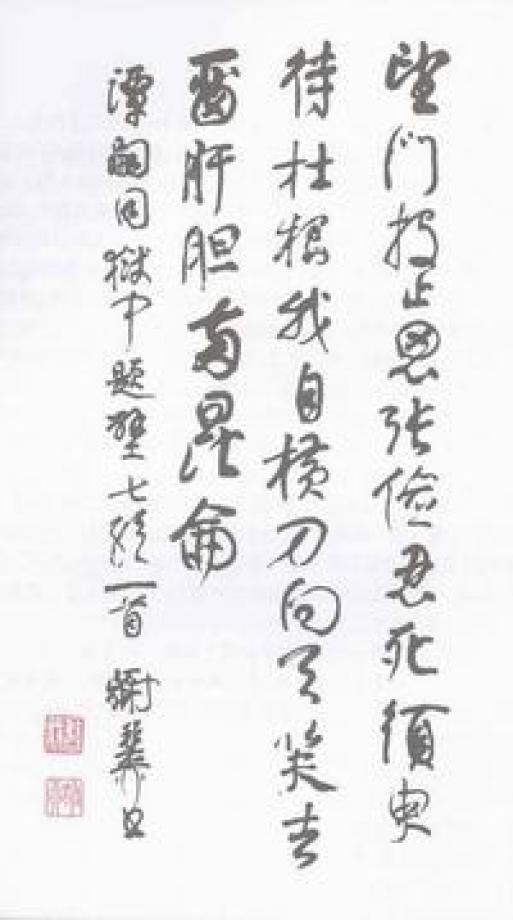 望门投止思张俭忍死须臾
待杜根我自横刀向天笑去
留肝胆两昆侖
谭嗣同狱中题壁七绝一首 谢